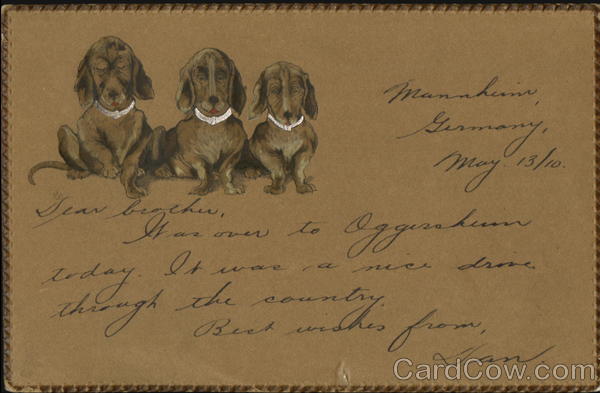 Mannheim,
Germany,
May. 13/10.
Dear brother,
Was over to Oggersheim
today. It was a nice drive
through the country.
Best wishes from,
CardCow.com